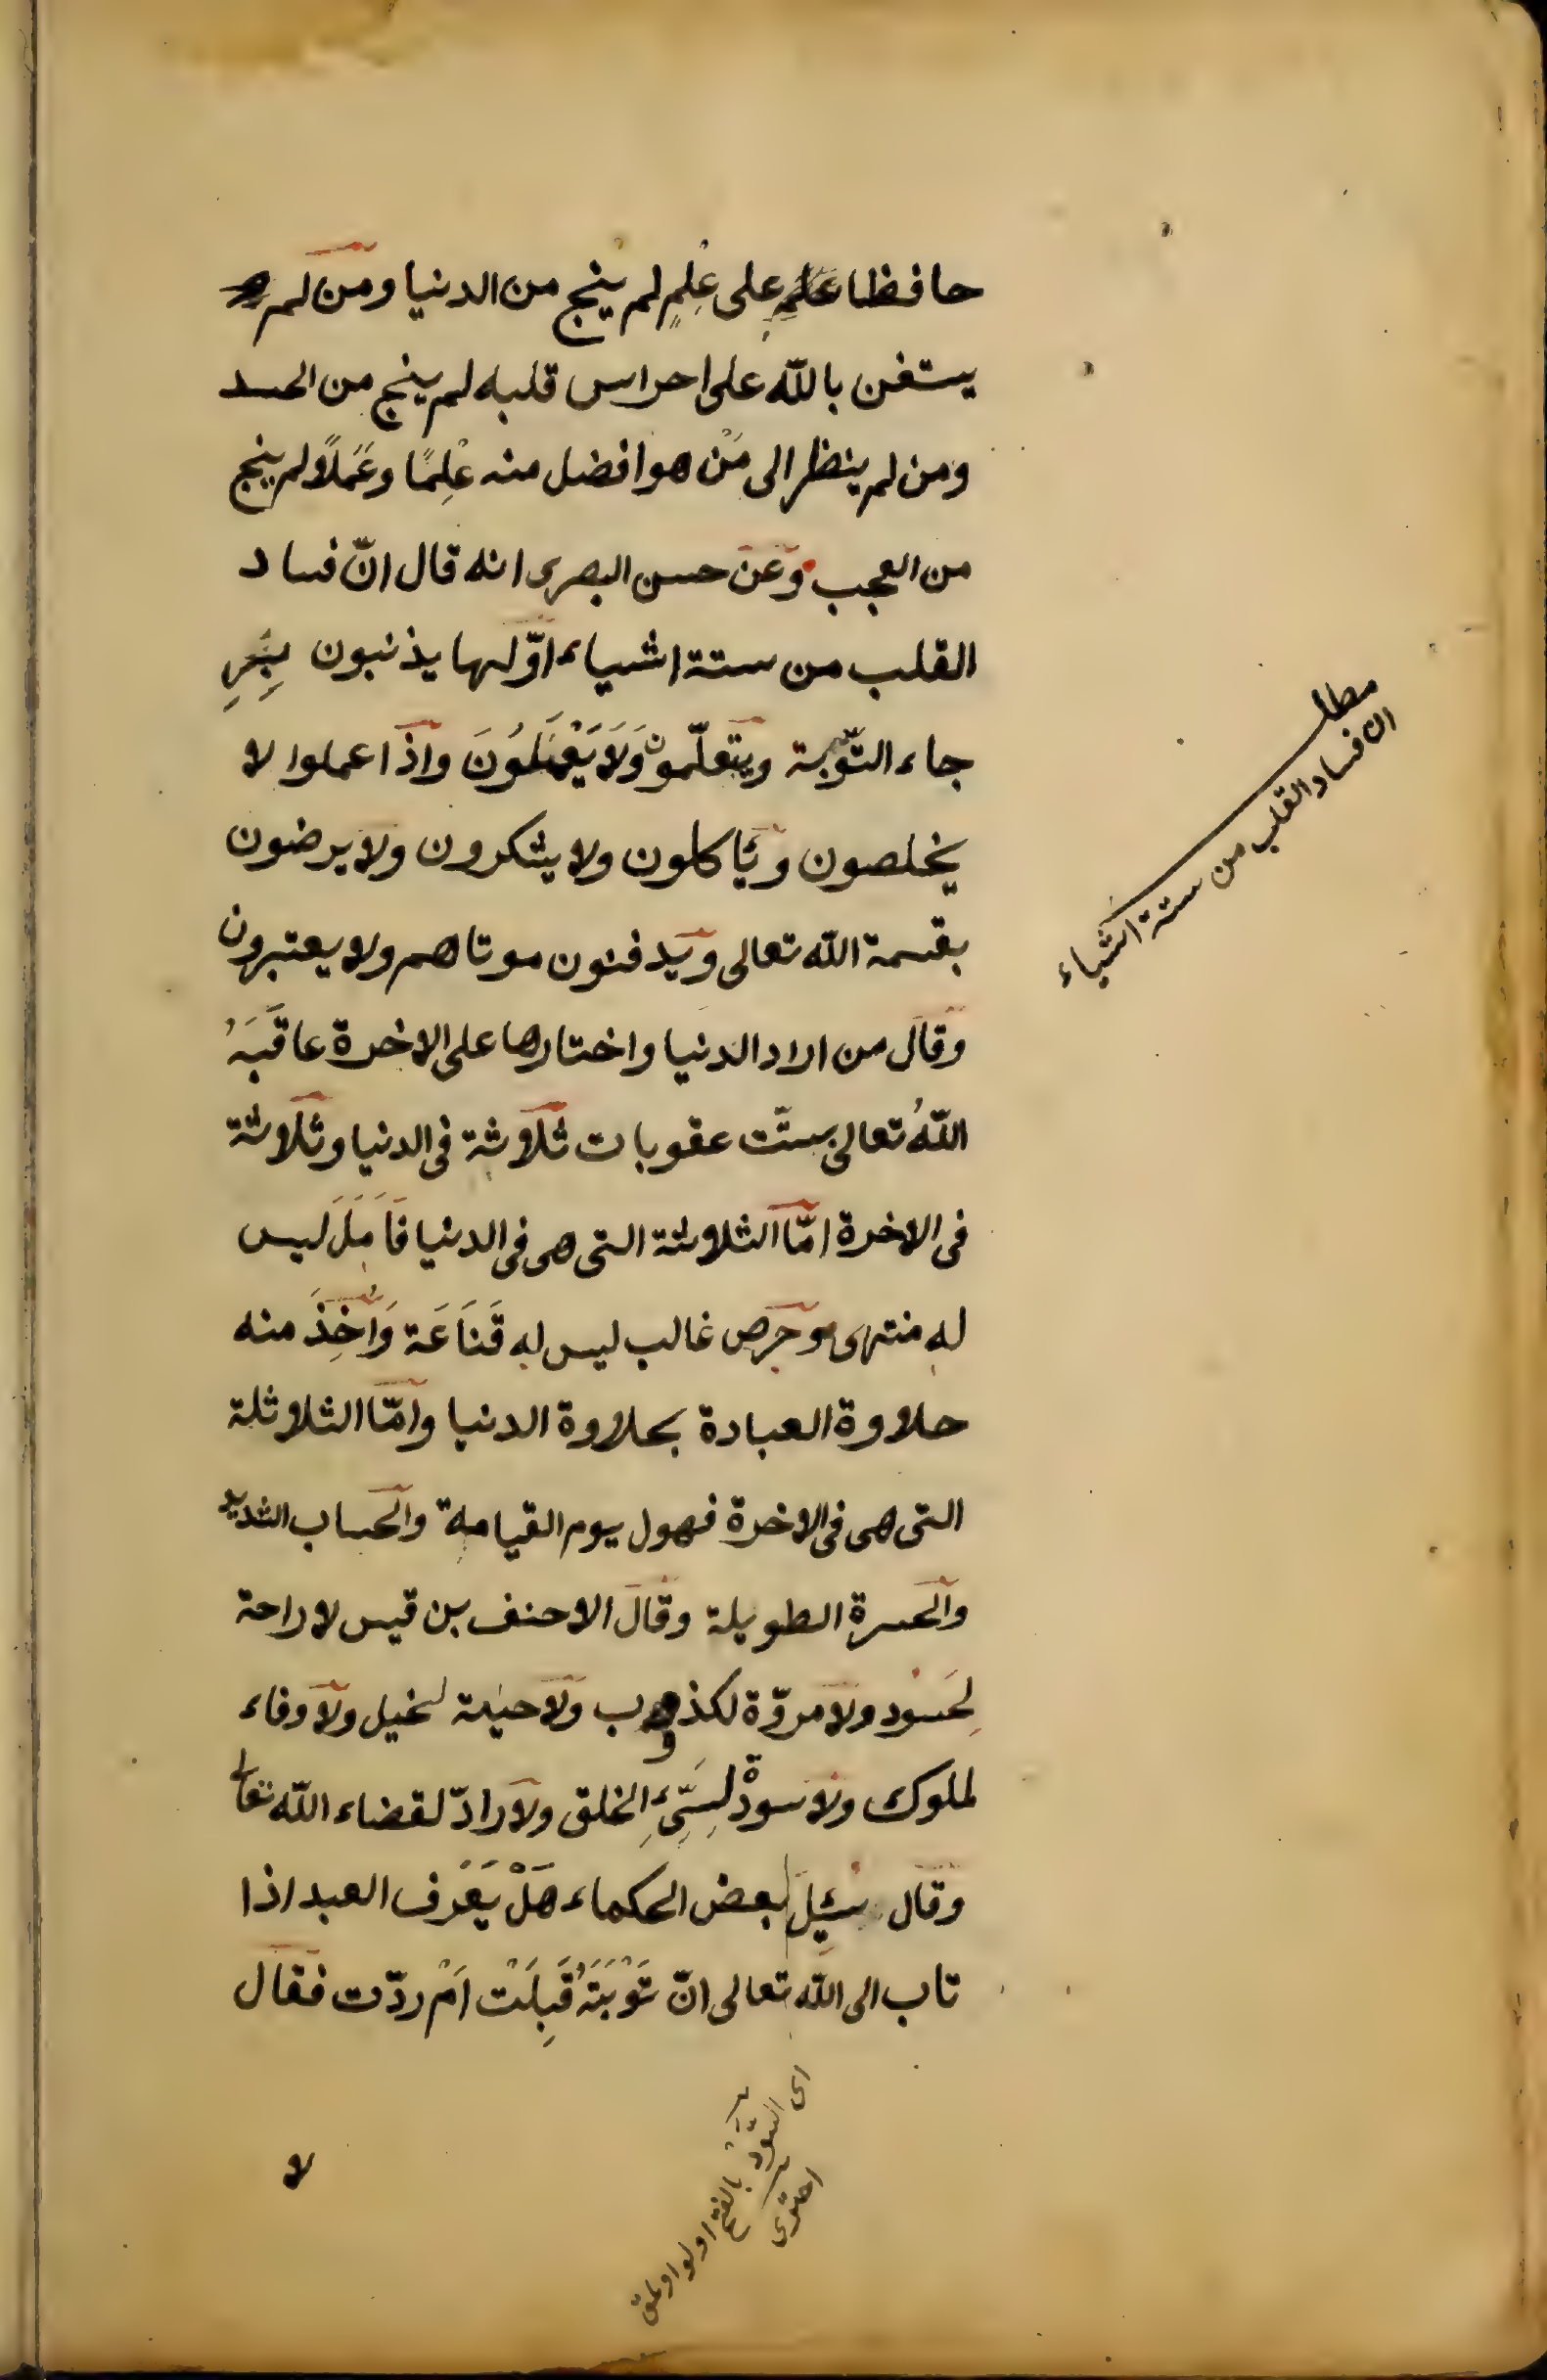 حافظا على عِلمٍ لم ينج من الدنيا ومن لم
يستغن بالله على احراس قلبه لم ينج من الحسد
ومن لم ينظر الى مَنْ هو افضل منه عِلمًا وعَمَلاً لم ينج
من العجب وعن حسن البصرى انه قال انّ فساد
القلب من ستة اشياء اوّلها يذنبون بِرَ
جاء التّوبة ويتعلّمون وَلَا يَعْمَلُونَ واذا عملوا لا
يخلصون ويأكلون ولا يشكرون ولا يرضون
بقسمة الله تعالى ويدفنون موتاهم ولا يعتبرون
وقال من اراد الدنيا واختارها على الاخرة عاقَبَهُ
اللهُ تعالى بستّ عقوبات ثلاثة فى الدنيا وثلاثة
فى الاخرة امّا الثلاثة التى هى فى الدنيا فَاَمَلَ ليس
له منتهى وحرص غالب ليس له قَنَاعَة وَاُخِذَ منه
حلاوة العبادة بحلاوة الدنيا وامّا الثلاثة
التى هى فى الاخرة فهول يوم القيامة والحساب الشديد
والحسرة الطويلة وقال الاحنف بن قيس لا راحة
لِحَسُود ولا مروّة لكذوب ولا حيلة لبخيل ولا وفاء
لملوك ولا سودْ لِسَيِّءِ الخلق ولا رادّ لقضاء الله تعا
وقال سُئِلَ بعض الحكماء هَلْ يَعَرف العبد اذا
تاب الى الله تعالى انّ تَوْبَتَهُ قَبِلَتْ اَمْ ردّت فقال
لا
مطلب
ان فساد القلب من ستة اشياء
اى السَّوْدُ بالفتح اولو اولمق
اختری